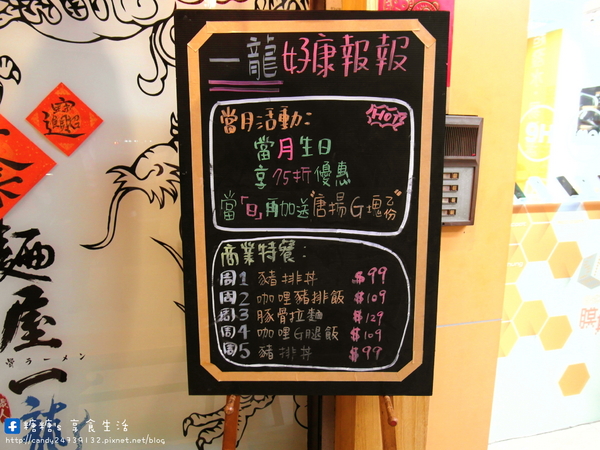 一龍 好康報報
當月活動:
HOT
當月生日
享75折優惠
當「日」再加送"唐揚G塊"乙份
商業特餐:
周1 豬排丼 $99
周2 咖哩豬排飯 $109
周3 豚骨拉麵 $129
周4 咖哩G腿飯 $109
周5 豬排丼 $99
招財進寶
麵屋一龍
ラーメン
糖糖's 享食生活
http://candy24939132.pixnet.net/blog